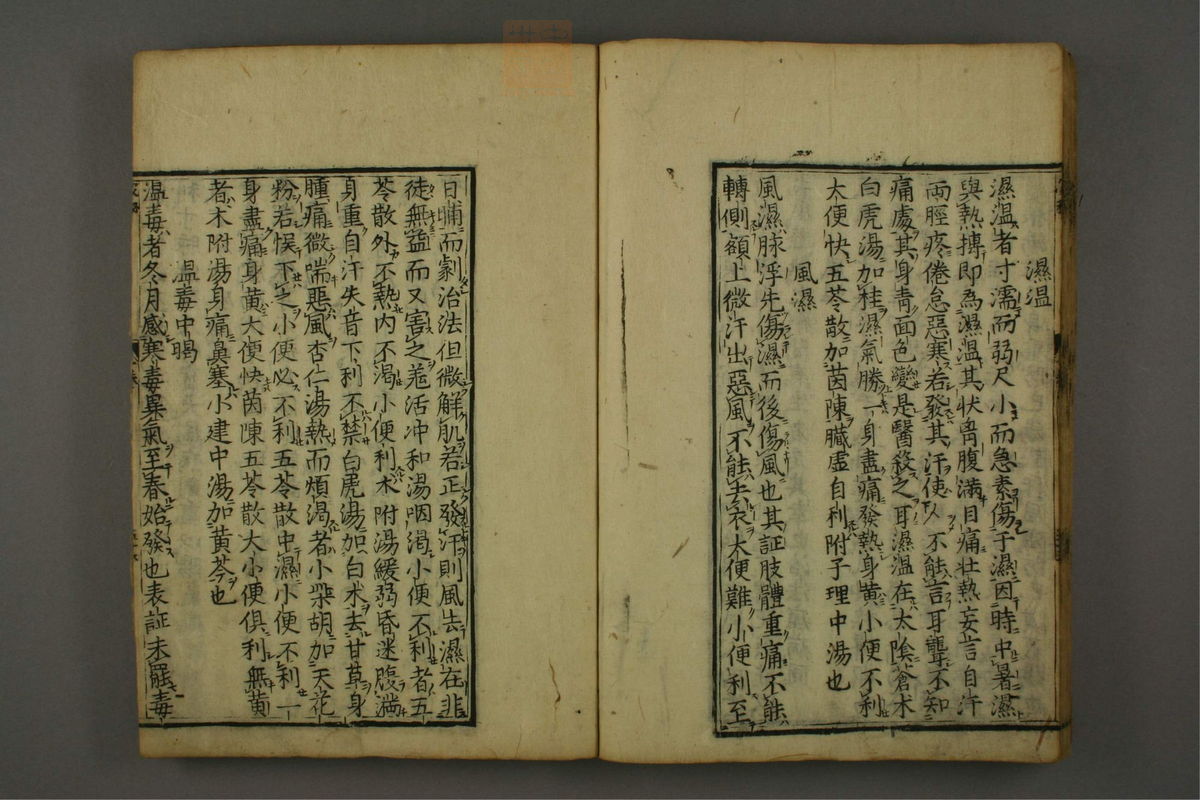 濕温
濕温者寸濡而弱尺小而急素傷于濕因時中暑濕
與熱搏即為濕温其状胷腹满目痛壮熱妄言自汗
両脛疼倦怠惡寒若發其汗使人不能言耳聾不知
痛處其身青面色變是醫殺之耳濕温在太陰蒼术
白虎湯加桂濕氣勝一身盡痛發熱身黄小便不利
大便快五苓散加茵陳臓虚自利附子理中湯也
風濕
風濕脉浮先傷濕而後傷風也其証肢體重痛不能
轉側額上微汗出惡風不能去衣大便難小便利至
日晡而劇治法但微解肌若正發汗則風去濕在非
徒無益而又害之羗活冲和湯咽渇小便不利者五
苓散外不熱内不渇小便利术附湯緩弱昏迷腹満
身重自汗失音下利不禁白虎湯加白术去甘草身
腫痛微喘惡風杏仁湯熱而煩渇者小柴胡加天花
粉若悞下之小便必不利五苓散中濕小便不利一
身盡痛身黄大便快茵陳五苓散大小便俱利無黄
者术附湯身痛鼻塞小建中湯加黄芩也
温毒中暍
温毒者冬月感寒毒異氣至春始發也表証未罷毒